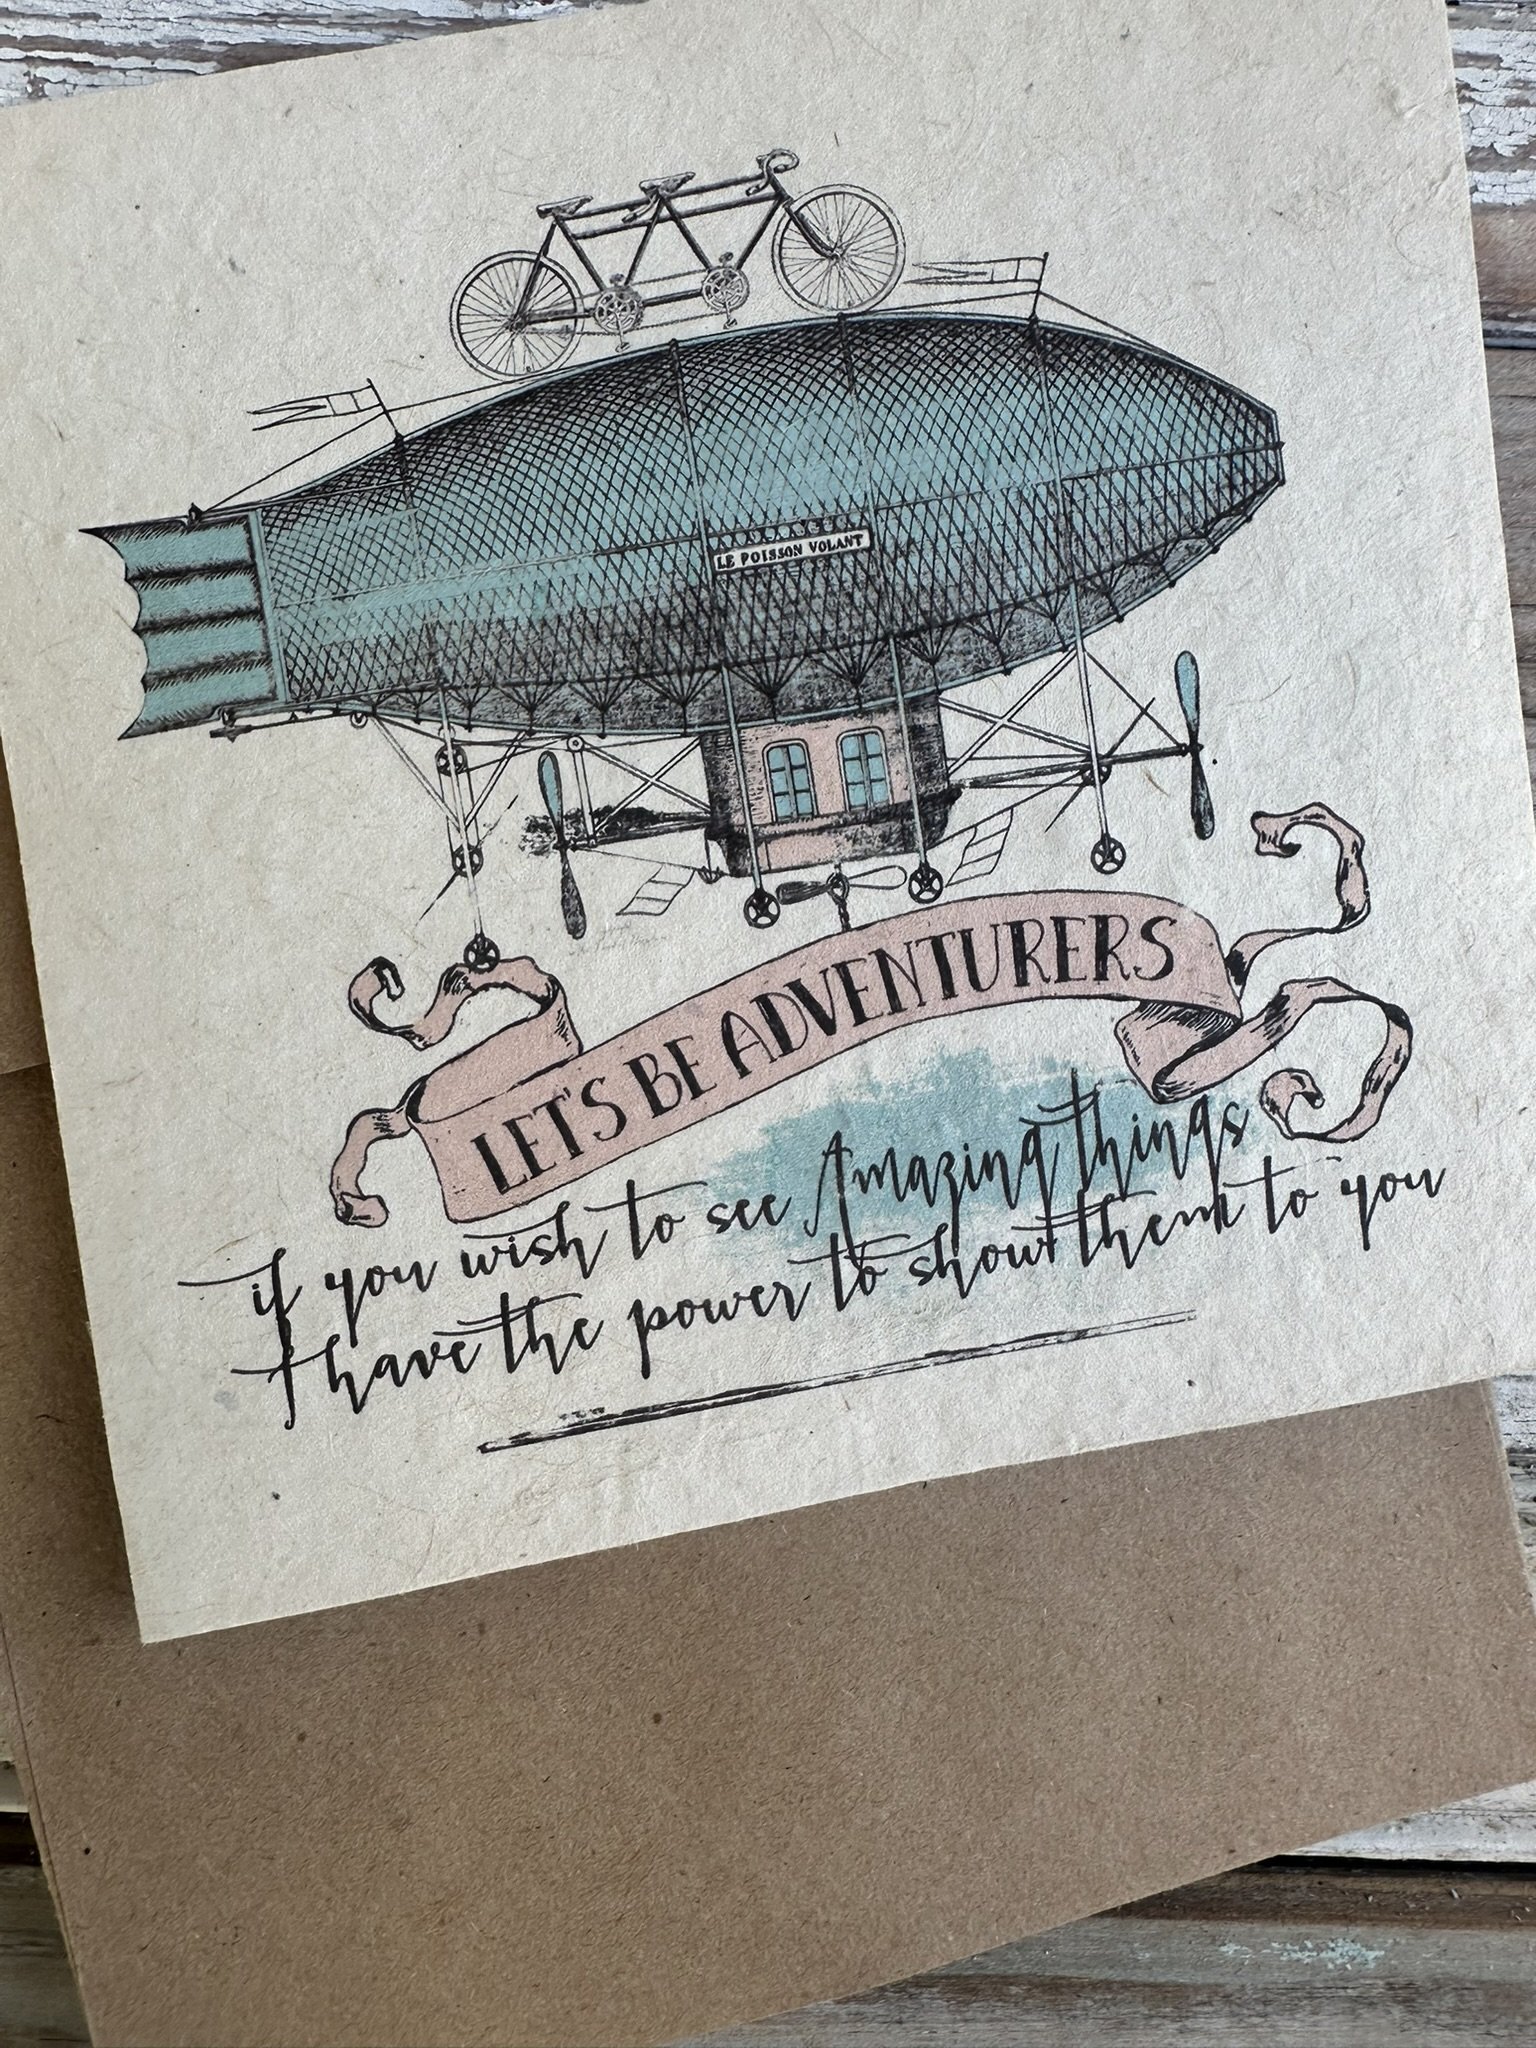 LE POISSON VOLANT
LET'S BE ADVENTURERS
if you wish to see Amazing things
I have the power to show them to you